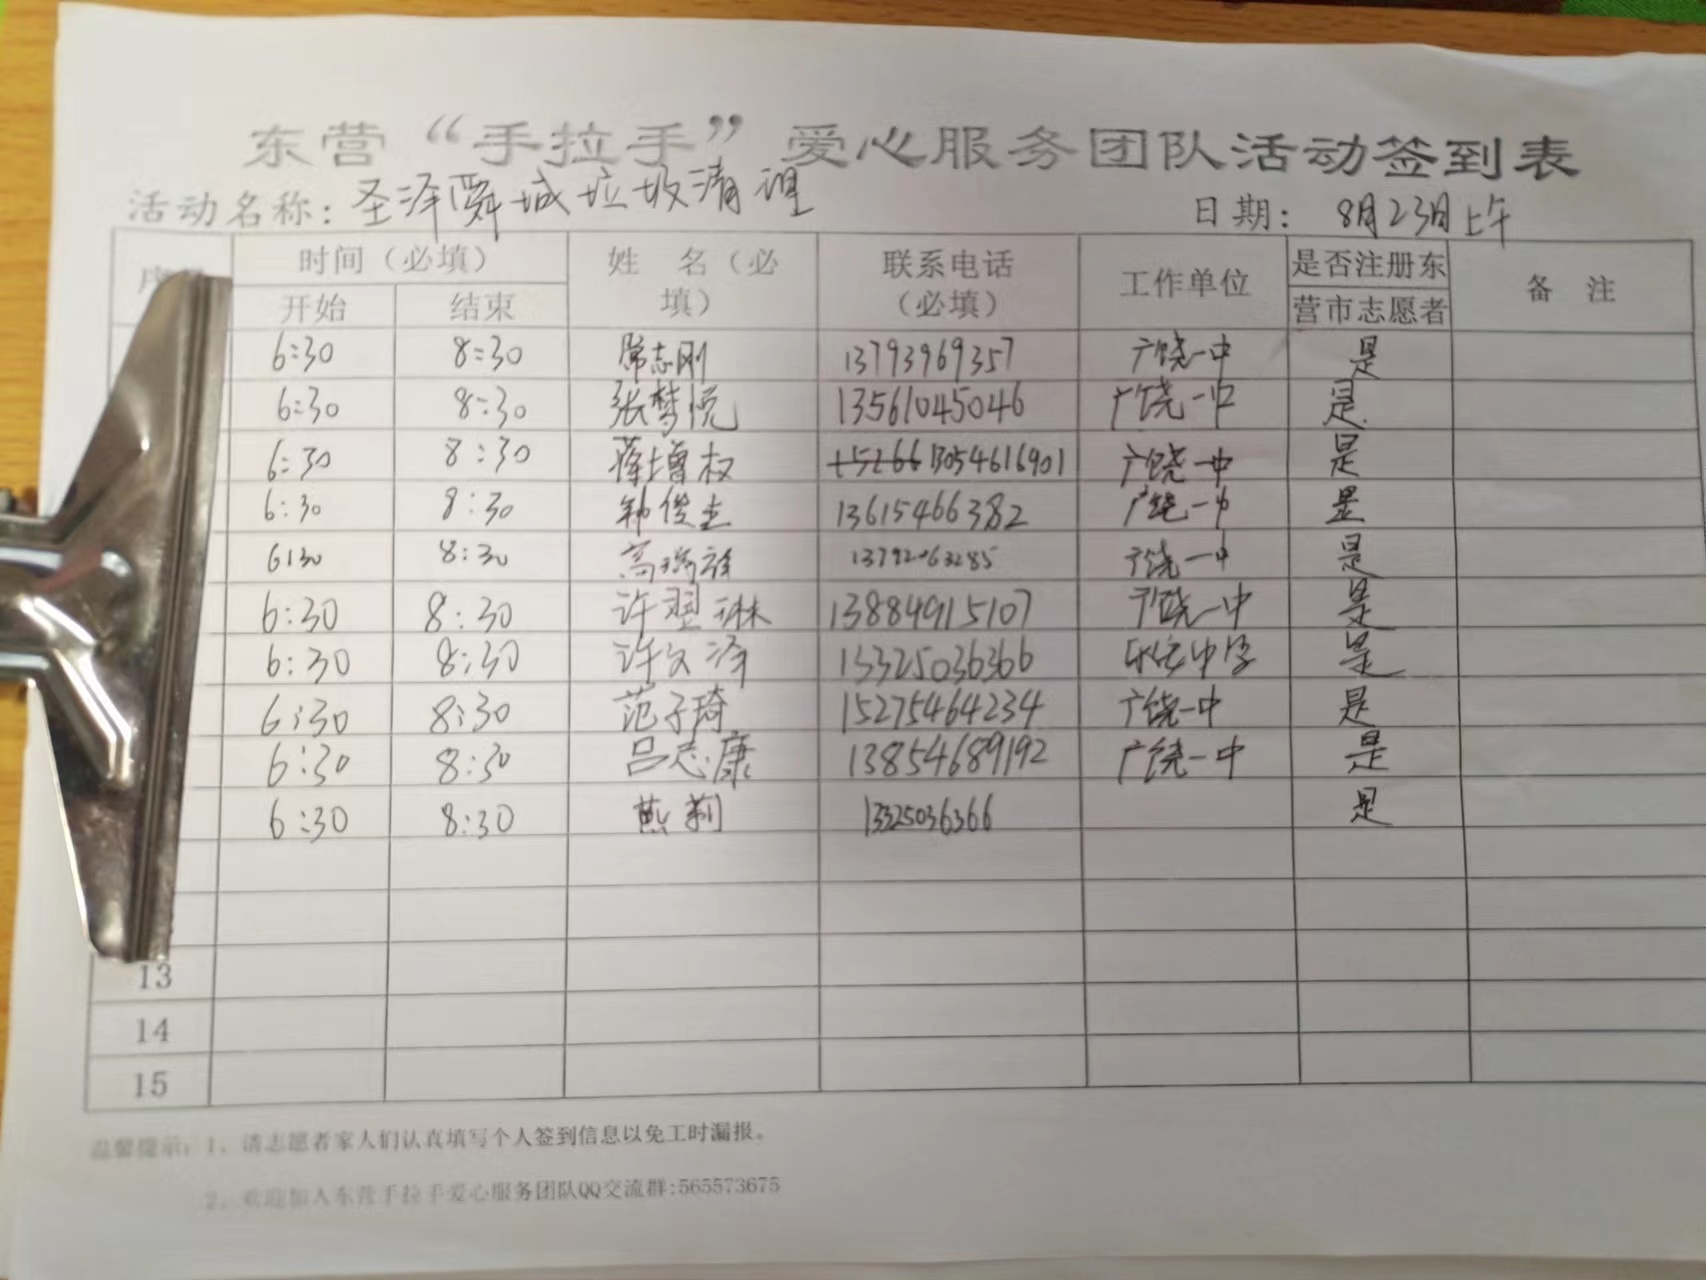 东营“手拉手”爱心服务团队活动签到表
活动名称：圣泽舜城垃圾清理 日期：8月23日上午
序 时间（必填） 姓 名（必填） 联系电话（必填） 工作单位 是否注册东营市志愿者 备 注
开始 结束
6:30 8:30 常志刚 13793969357 广饶一中 是
6:30 8:30 张梦悦 13561045046 广饶一中 是
6:30 8:30 蒋增权 15266 13054616901 广饶一中 是
6:30 8:30 俊杰 13615466382 广饶一中 是
6:30 8:30 高瑞 13792063285 广饶一中 是
6:30 8:30 许翌琳 13884915107 广饶一中 是
6:30 8:30 许久泽 13325036366 是
6:30 8:30 范子琦 15275464234 广饶一中 是
6:30 8:30 吕志康 13854689192 广饶一中 是
6:30 8:30 燕莉 13325036366 是
13
14
15
温馨提示：1、请志愿者家人们认真填写个人签到信息以免工时漏报。
2、欢迎加入东营手拉手爱心服务团队QQ交流群:565573675